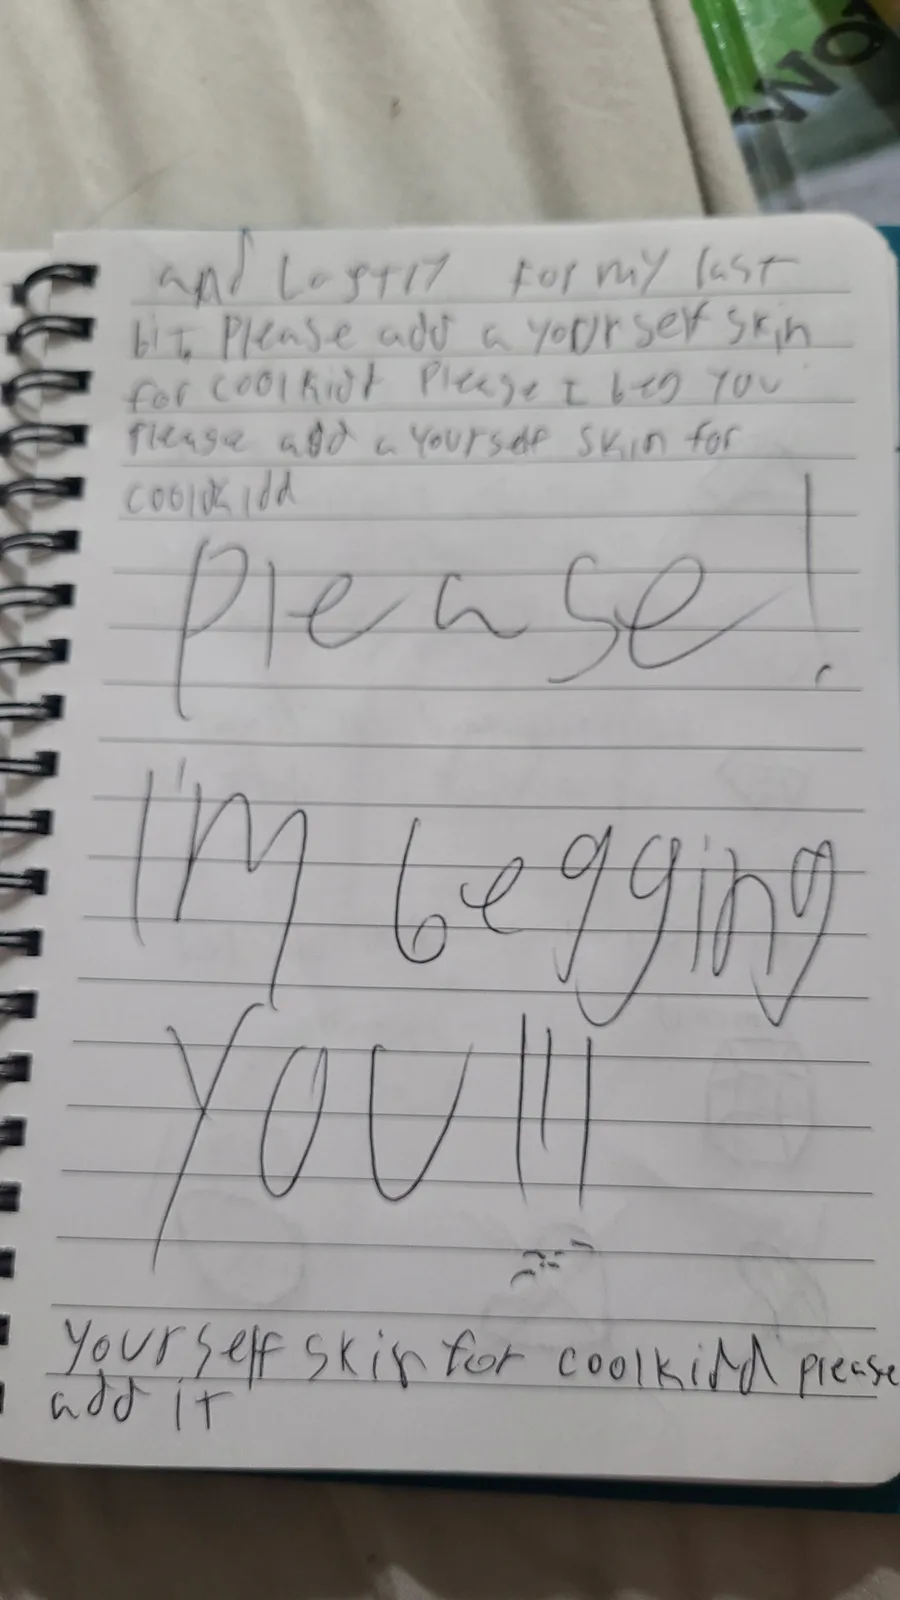 WOM
and Lastly for my last
bit, Please add a yourself skin
for coolkidd Please I beg you
Please add a yourself skin for
coolkidd
Please!
I'm begging
you!!!
yourself skin for coolkidd please
add it